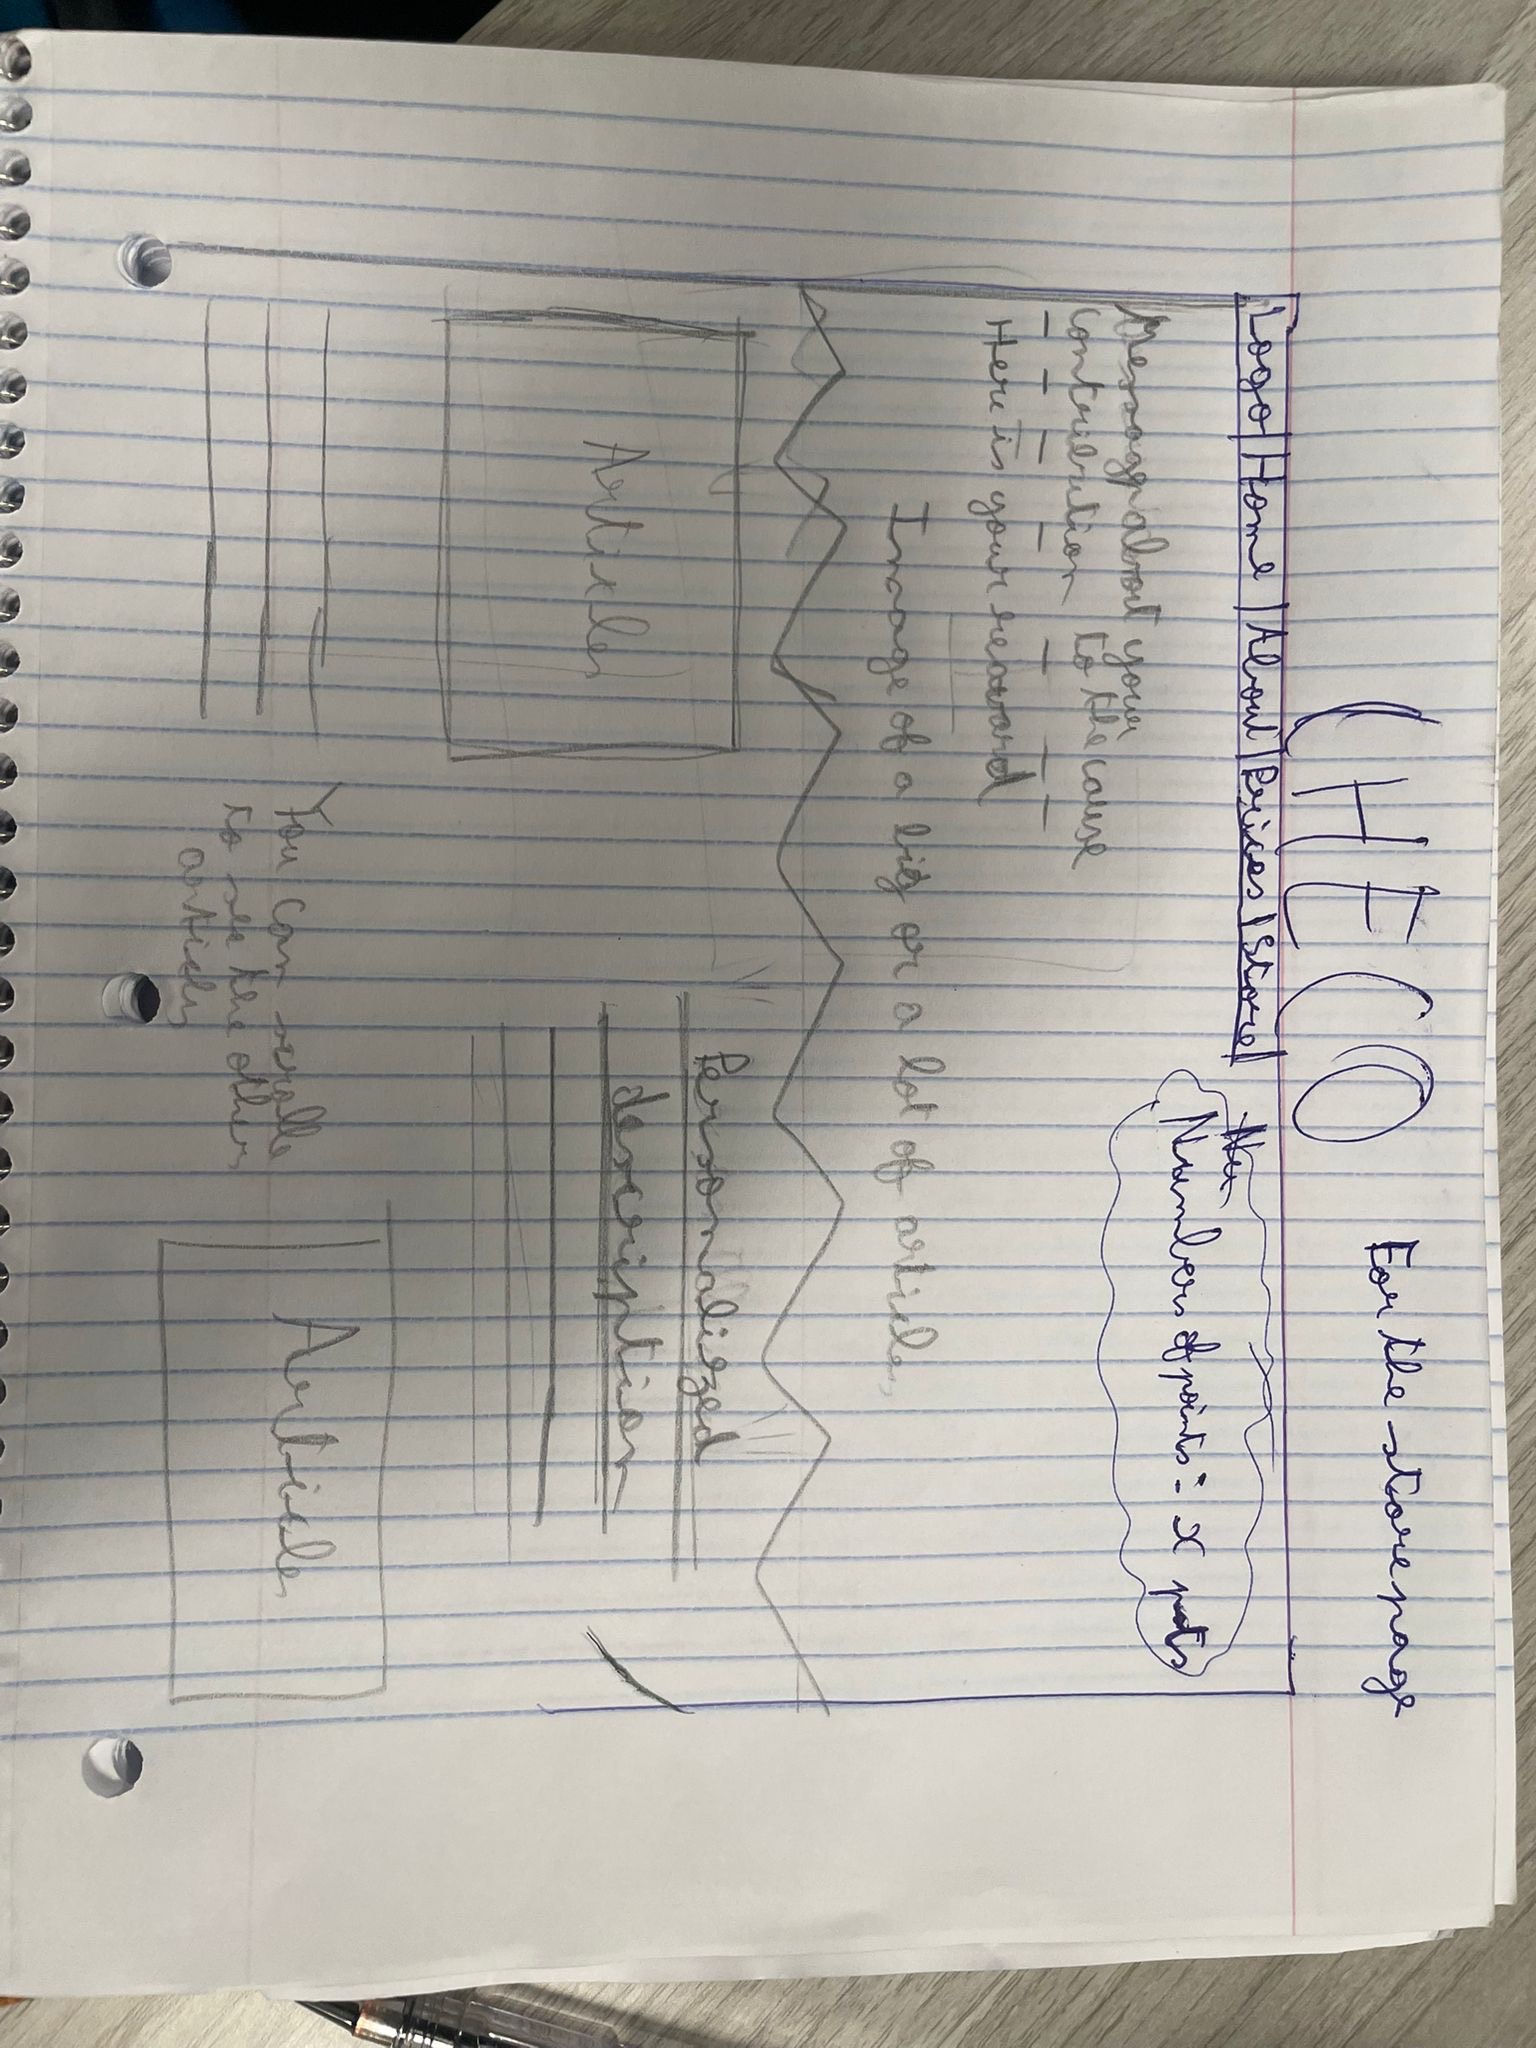 CHECO For the store page
Logo | Home | About | Prices | Store |
Numbers of points: x pts
Message about your
contribution to the cause
Here is your reward
Image of a big or a lot of articles
Articles
Personalized
description
You can scrolle
to see the others
articles
Articles